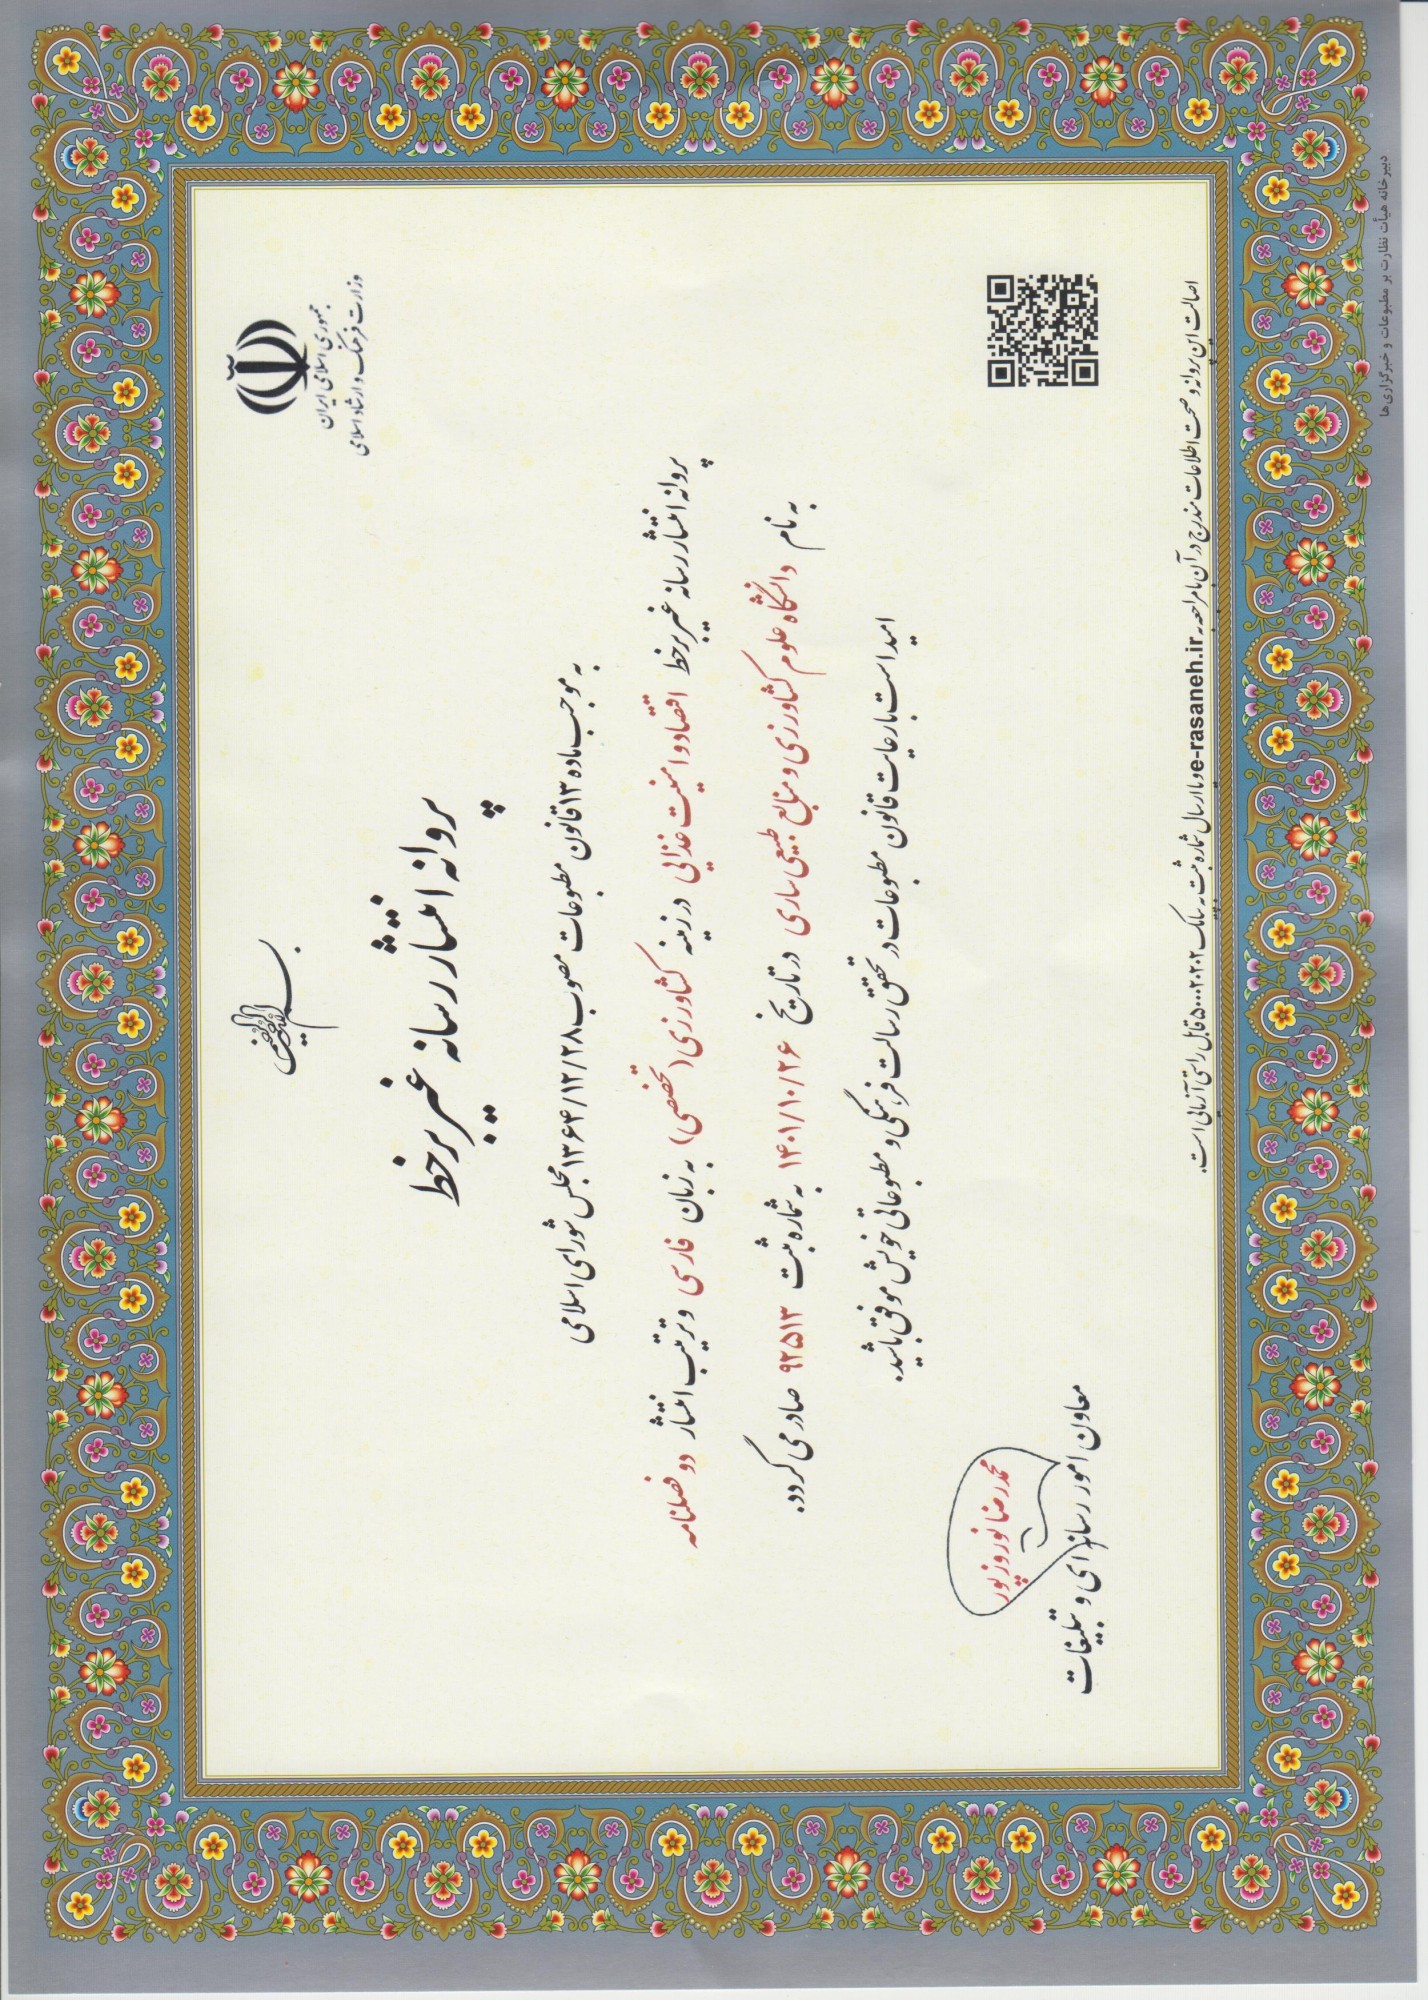 جمهوری اسلامی ایران
وزارت فرهنگ و ارشاد اسلامی
پروانه انتشار رسانه غیر برخط
به موجب ماده ۱۳ قانون مطبوعات مصوب ۱۳۶۴/۱۲/۲۸ مجلس شورای اسلامی
پروانه انتشار رسانه غیر برخط اقتصاد و امنیت غذایی در زمینه کشاورزی (تخصصی) به زبان فارسی و ترتیب انتشار دو فصلنامه
به نام دانشگاه علوم کشاورزی و منابع طبیعی ساری در تاریخ ۱۴۰۱/۱۰/۲۶ به شماره ثبت ۹۲۵۱۳ صادر می گردد.
امید است با رعایت قانون مطبوعات در تحقق رسالت فرهنگی و مطبوعاتی خویش موفق باشید.
محمدرضا نوروزپور
معاون امور رسانه ای و تبلیغات
اصالت این پروانه و صحت اطلاعات مندرج در آن با مراجعه به e-rasaneh.ir و یا ارسال شماره ثبت به پیامک ۵۰۰۰۲۰۲۰۲ قابل راستی آزمایی است.
دبیرخانه هیأت نظارت بر مطبوعات و خبرگزاری ها